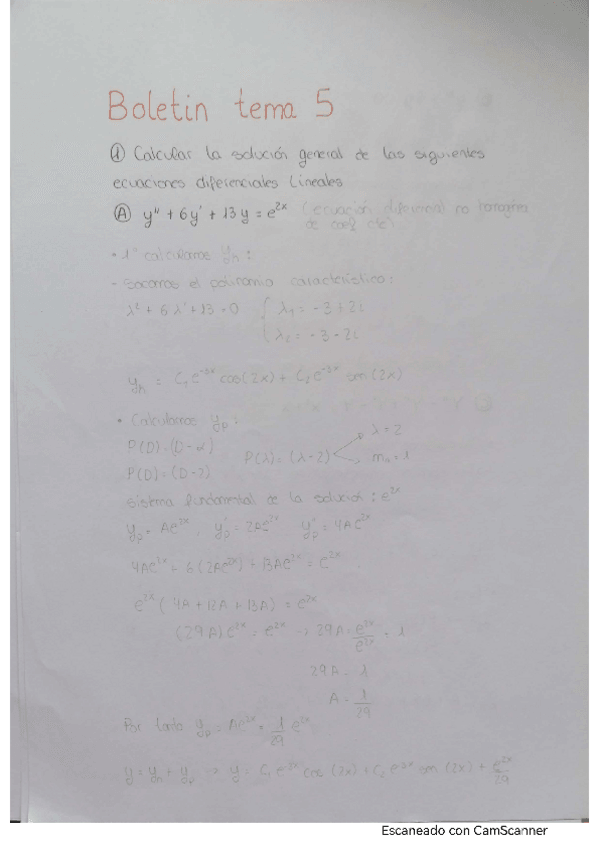 Boletin tema 5
① Calcular la solución general de las siguientes
ecuaciones diferenciales lineales
Ⓐ y'' + 6y' + 13y = e^{2x} (ecuación diferencial no homogénea
de coef cte)
• 1º calculamos y_h :
- Sacamos el polinomio característico:
λ² + 6λ' + 13 = 0 { λ₁ = -3 + 2i
λ₂ = -3 - 2i
y_h = C₁e^{-3x} cos(2x) + C₂e^{-3x} sen(2x)
• Calculamos y_p :
P(D) = (D - α)
P(D) = (D - 2)
P(λ) = (λ - 2)
λ = 2
Sistema fundamental de la solución : e^{2x}
y_p = Ae^{2x} , y'_p = 2Ae^{2x} y''_p = 4Ae^{2x}
4Ae^{2x} + 6(2Ae^{2x}) + 13Ae^{2x} = e^{2x}
e^{2x} (4A + 12A + 13A) = e^{2x}
(29A)e^{2x} = e^{2x} → 29A = e^{2x}/e^{2x} = 1
29A = 1
A = 1/29
Por tanto y_p = Ae^{2x} = 1/29 e^{2x}
y = y_h + y_p → y = C₁e^{-3x} cos (2x) + C₂ e^{-3x} sen (2x) + e^{2x}/29
Escaneado con CamScanner